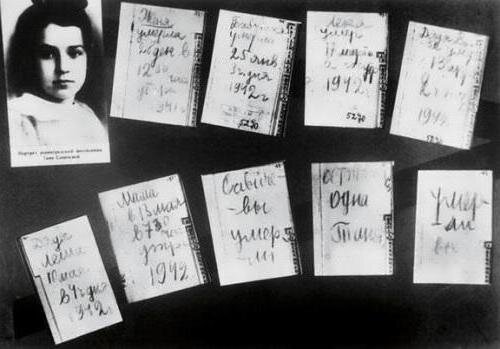 Портрет ленинградской школьницы
Тани Савичевой
Женя
умерла
28 дек в
12 30 час
утра
1941 г
Бабушка
умерла
25 янв
3 ч дня
1942 г
5270
Лека
умер
17 марта
1942 г
5270
Дядя
13 апр
2 ч
1942
5270
Дядя
Леша
10 мая
в 4 ч дня
1942
Мама
в 13 мая
в 7 30
час
утра
1942
Савиче
-вы
умер
ли
одна
Таня
умер
-ли
все